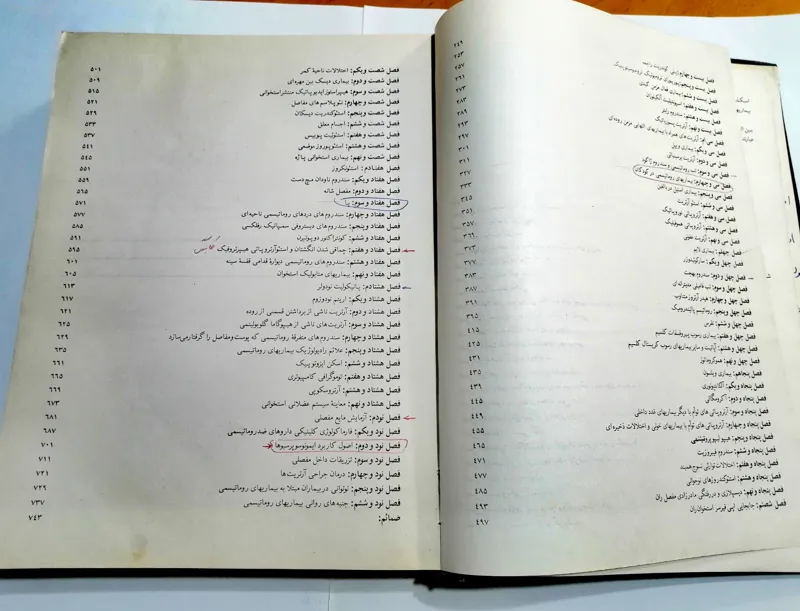 ۲۴۹
۲۵۳
فصل بیست و چهارم:
۲۵۷
فصل بیست و پنجم:
۲۶۱
فصل بیست و ششم: بیماری فعال مزمن کبدی
۲۷۳
فصل بیست و هفتم: اسپوندیلیت آنکیلوزان
۲۸۳
فصل بیست و هشتم: سندروم رایتر
۲۸۹
فصل بیست و نهم: آرتریت پسوریاتیک
۲۹۳
فصل سی ام: آرتریت های همراه با بیماریهای التهابی مزمن روده‌ای
۲۹۷
فصل سی و یکم: بیماری ویپل
۳۰۱
فصل سی و دوم: آرتریت پرمیسانی
۳۱۱
فصل سی و سوم: تب روماتیسمی و سندروم ژاکود
۳۲۷
فصل سی و چهارم: بیماریهای روماتیسمی در کودکان
۳۳۳
فصل سی و پنجم: بیماری استیل در بالغین
۳۴۵
فصل سی و ششم: استئو آرتریت
۳۵۱
فصل سی و هفتم: آرتروپاتی نوروپاتیک
۳۶۱
فصل سی و هشتم: آرتروپاتی هموفیلیک
۳۶۵
فصل سی و نهم: آرتریت عفونی
۳۷۳
فصل چهلم: بیماری لایم
۳۷۷
فصل چهل و یکم: سارکوئیدوز
۳۸۳
فصل چهل و دوم: سندروم بهجت
۳۸۷
فصل چهل و سوم: تب فامیلی مدیترانه‌ای
۳۹۱
فصل چهل و چهارم: هیدر آرتروز متناوب
۳۹۵
فصل چهل و پنجم: روماتیسم پالیندرومیک
۴۱۵
فصل چهل و ششم: نقرس
۴۲۵
فصل چهل و هفتم: بیماری رسوب پیروفسفات کلسیم
۴۳۱
فصل چهل و هشتم: آپاتیت و سایر بیماریهای رسوب کریستال کلسیم
۴۳۵
فصل چهل و نهم: هموکروماتوز
۴۳۹
فصل پنجاهم: بیماری ویلسون
۴۴۵
فصل پنجاه و یکم: آلکاپتونوری
۴۴۹
فصل پنجاه و دوم: آکرومگالی
۴۵۵
فصل پنجاه و سوم: آرتروپاتی های توأم با دیگر بیماریهای غدد داخلی
۴۶۵
فصل پنجاه و چهارم: آرتروپاتی های توأم با بیماریهای خونی و اختلالات ذخیره‌ای
۴۷۱
فصل پنجاه و پنجم: هیپرلیپوپروتئینمی
۴۷۷
فصل پنجاه و ششم: سندروم فیبروزیت
۴۸۵
فصل پنجاه و هفتم: اختلالات توارثی نسوج همبند
۴۹۳
فصل پنجاه و هشتم: استئوکندروزهای نوجوانی
۴۹۷
فصل پنجاه و نهم: دیسپلازی و دررفتگی مادرزادی مفصل ران
فصل شصتم: جابجایی اپی فیزسر استخوان ران
فصل شصت و یکم: اختلالات ناحیهٔ کمر ۵۰۱
فصل شصت و یکم: بیماری دیسک بین مهره‌ای ۵۰۹
فصل شصت و سوم: هیپراستوز ایدیوپاتیک منتشر استخوانی ۵۱۵
فصل شصت و چهارم: نئوپلاسم های مفاصل ۵۲۱
فصل شصت و پنجم: استئوکندریت دیسکان ۵۲۹
فصل شصت و ششم: اجسام معلق ۵۳۳
فصل شصت و هفتم: استئولیت پوبیس ۵۳۷
فصل شصت و هشتم: استئوپوروز موضعی ۵۴۱
فصل شصت و نهم: بیماری استخوانی پاژه ۵۴۵
فصل هفتادم: استئونکروز ۵۵۱
فصل هفتاد و یکم: سندروم ناودان مچ دست ۵۵۹
فصل هفتاد و دوم: مفصل شانه ۵۶۵
فصل هفتاد و سوم: پا ۵۷۱
فصل هفتاد و چهارم: سندروم های دردهای روماتیسمی ناحیه‌ای ۵۷۷
فصل هفتاد و پنجم: سندروم های دیستروفی سمپاتیک رفلکسی ۵۸۵
فصل هفتاد و ششم: کونتراکتور دوپویترند ۵۹۱
فصل هفتاد و هفتم: چماقی شدن انگشتان و استئوآرتروپاتی هیپرتروفیک ۵۹۵
فصل هفتاد و هشتم: سندروم های روماتیسمی دیوارهٔ قدامی قفسهٔ سینه ۶۰۱
فصل هفتاد و نهم: بیماریهای متابولیک استخوان ۶۰۵
فصل هشتادم: پانیکولیت نودولر ۶۱۳
فصل هشتاد و یکم: اریتم نودوزوم ۶۱۷
فصل هشتاد و دوم: آرتریت ناشی از برداشتن قسمتی از روده ۶۲۱
فصل هشتاد و سوم: آرتریت‌های ناشی از هیپوگاما گلوبولینمی ۶۲۵
فصل هشتاد و چهارم: سندروم های متفرقهٔ روماتیسمی که پوست و مفاصل را گرفتار می‌سازد ۶۲۷
فصل هشتاد و پنجم: علائم رادیولوژیک بیماریهای روماتیسمی ۶۳۵
فصل هشتاد و ششم: اسکن ایزوتوپیک ۶۶۱
فصل هشتاد و هفتم: توموگرافی کامپیوتری ۶۶۵
فصل هشتاد و هشتم: آرتروسکوپی ۶۶۹
فصل هشتاد و نهم: معاینهٔ سیستم عضلانی استخوانی ۶۷۳
فصل نودم: آزمایش مایع مفصلی ۶۸۱
فصل نود و یکم: فارماکولوژی کلینیکی داروهای ضدروماتیسمی ۶۸۷
فصل نود و دوم: اصول کاربرد ایمونوسوپرسیوها ۷۰۱
فصل نود و سوم: تزریقات داخل مفصلی ۷۱۱
فصل نود و چهارم: درمان جراحی آرتریت‌ها ۷۲۱
فصل نود و پنجم: نوتوانی در بیماران مبتلا به بیماریهای روماتیسمی ۷۲۹
فصل نود و ششم: جنبه‌های روانی بیماریهای روماتیسمی ۷۳۷
ضمائم: ۷۴۳